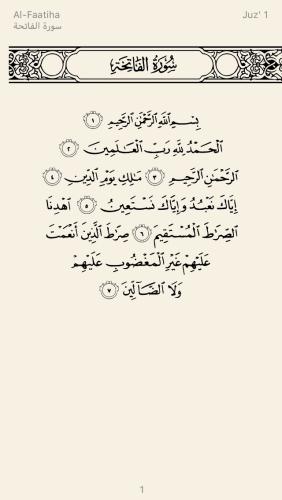 Al-Faatiha
Juz' 1
سورة الفاتحة
سُورَةُ الفَاتِحَةِ
بِسْمِ ٱللَّهِ ٱلرَّحْمَٰنِ ٱلرَّحِيمِ ١
ٱلْحَمْدُ لِلَّهِ رَبِّ ٱلْعَٰلَمِينَ ٢
ٱلرَّحْمَٰنِ ٱلرَّحِيمِ ٣ مَٰلِكِ يَوْمِ ٱلدِّينِ ٤
إِيَّاكَ نَعْبُدُ وَإِيَّاكَ نَسْتَعِينُ ٥ ٱهْدِنَا
ٱلصِّرَٰطَ ٱلْمُسْتَقِيمَ ٦ صِرَٰطَ ٱلَّذِينَ أَنْعَمْتَ
عَلَيْهِمْ غَيْرِ ٱلْمَغْضُوبِ عَلَيْهِمْ
وَلَا ٱلضَّآلِّينَ ٧
1